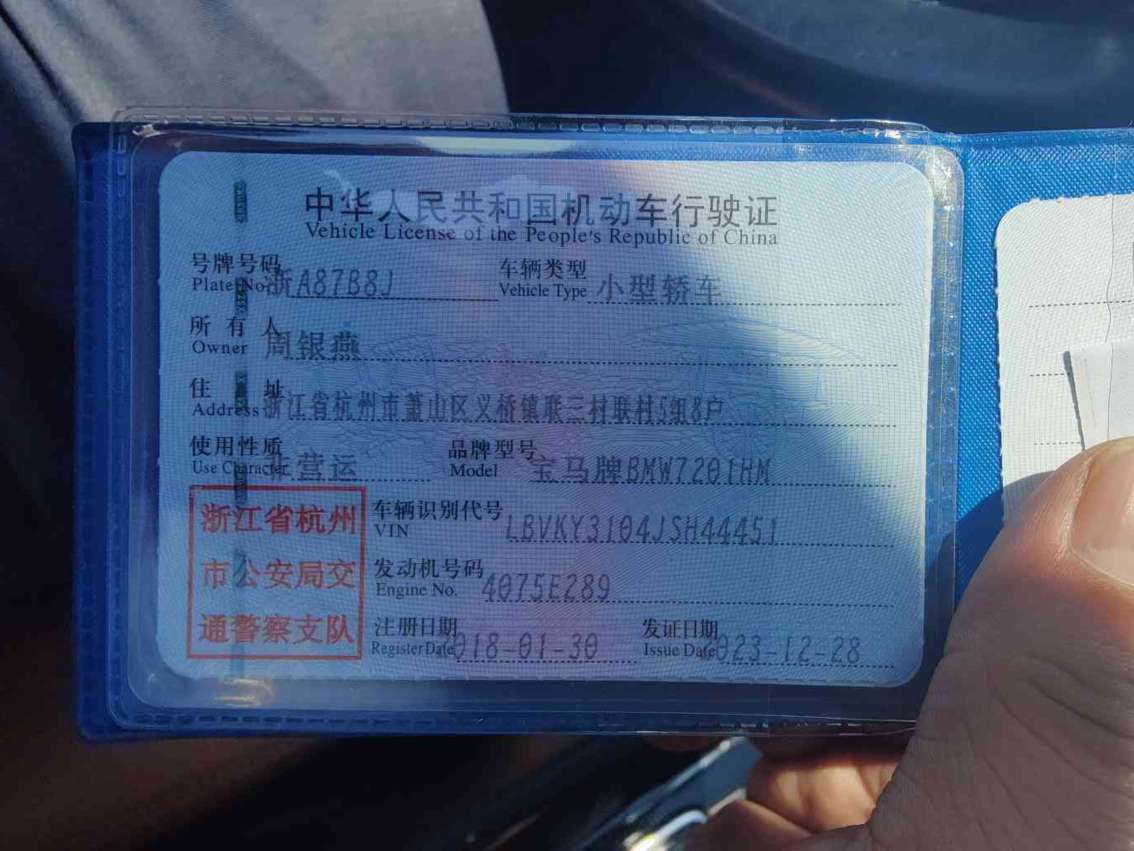 中华人民共和国机动车行驶证
Vehicle License of the People's Republic of China
号牌号码 浙A87B8J 车辆类型 小型轿车
Plate No. Vehicle Type
所有人 周银燕
Owner
住址 浙江省杭州市萧山区义桥镇联三村联村5组8户
Address
使用性质 非营运 品牌型号 宝马牌BMW7201HM
Use Character Model
浙江省杭州
市公安局交
通警察支队
车辆识别代号 LBVKY3104JSH44451
VIN
发动机号码 4075E289
Engine No.
注册日期 2018-01-30 发证日期 2023-12-28
Register Date Issue Date